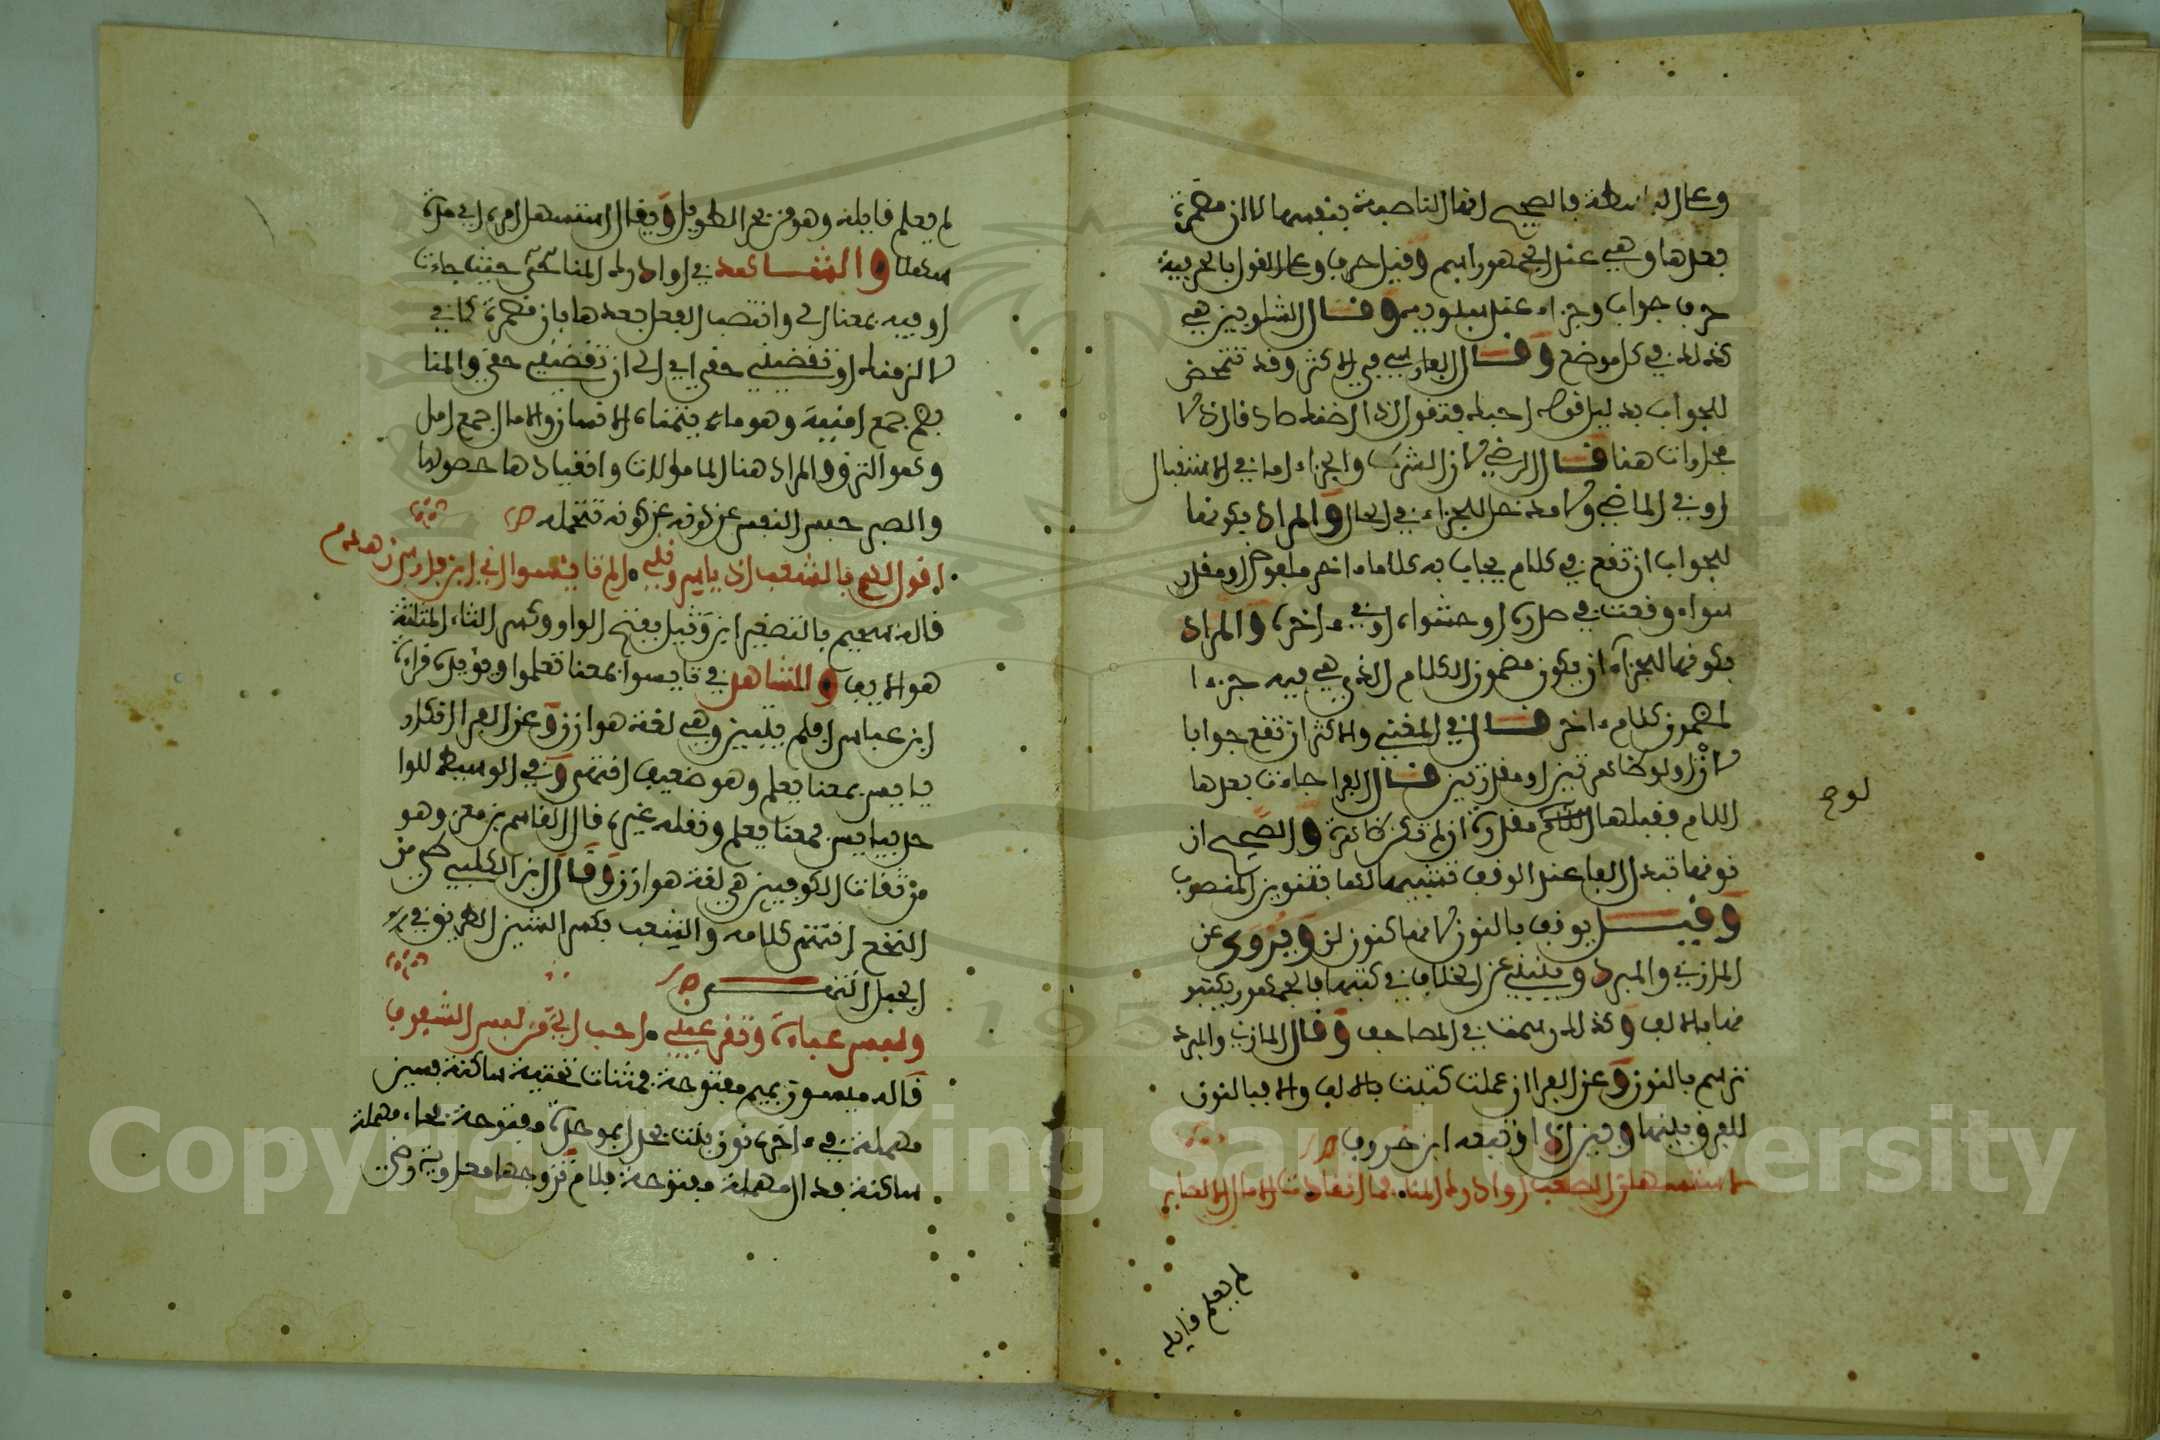 وعلى البساطة فالصحيح انها الناصبة بنفسها لا ان مضمرة
بعدها وهي عند الجمهور اسم وقيل حرف وعلى القول بالحرفية
حرف جواب وجزاء عند سيبويه وقال الشلوبين هي
كذلك في كل موضع وقال الفارسي في الاكثر وقد تتمحض
للجواب بدليل قوله احبك فتقول اذا اظنك صادقا اذ لا
مجازات هنا قال الرضي لان الشرط والجزاء اما في الاستقبال
او في الماضي ولا مدخل للجزاء في الحال والمراد بكونها
للجواب ان تقع في كلام يجاب به كلاما اخر ملفوظ او مقدر
سواء وقعت في صدره او حشوه او في ءاخره والمراد
بكونها للجزاء ان يكون مضمون الكلام الذي هي فيه جزءا
لمضمون كلام ءاخر قال في المغني والاكثر ان تقع جوابا
لان او لو ظاهرتين او مقدرتين قال الفرا حيث جاءت بعدها
اللام فقبلها لو مقدرة ان لم تكن ظاهرة والصحيح ان
نونها تبدل الفا عند الوقف تشبيها لها بتنوين المنصوب
وقيل يوقف بالنون لانها كنون لن ويروى عن
المازني والمبرد وينبني عن الخلاف في كتبها فالجمهور يكتبو
نها بالالف وكذلك رسمت في المصاحف وقال المازني والمبرد
ترسم بالنون وعن الفرا ان عملت كتبت بالالف والا فبالنون
للفرق بينها وبين اذا وتبعه ابن خروف ص
لاستسهلن الصعب او ادرك المنا فما انقادت الامال الا لصابر
لم يعلم قايله
لوح
لم يعلم قايله وهو من بحر الطويل ويقال استسهل امره اي عده
سهلا والشاهد في او ادرك المنا حتى حيث جاءت
او فيه بمعنا الى وانتصب الفعل بعدها بان مضمرة كما في
لالزمنك او تقضيني حقي اي الى ان تقضيني حقي والمنا
بضم جمع امنية وهو ما يتمناه الانسان والامال جمع امل
وهو الترقي والمراد هنا المامولات وانقيادها حصولها
والصبر حبس النفس عن كونه تتحمله ص
اقول لهم بالشعب اذ ياسرونني الم تايسوا اني ابن فارس زهدم
قاله سحيم بالتصغير ابن وثيل بفتح الواو وكسر الثاء المثلثة
هو الايف والشاهد في تايسوا بمعنا تعلموا ويؤيده قراءة
ابن عباس افلم يتبين وهي لغة هوازن وعن الفرا انكار
يايس بمعنا يعلم وهو ضعيف انتهى وفي الوسيط للوا
حدي يايس بمعنا يعلم ونقله غيره قال القاسم بن معن وهو
من ثقات الكوفيين هي لغة هوازن وقال ابن الكلبي حي من
النخع انتهى كلامه والشعب بكسر الشين الطريق في
الجبل انتهى ص
ولبس عباءة وتقر عيني احب الي من لبس الشفوف
قاله ميسون بميم مفتوحة فمثنات تحتية ساكنة فسين
مهملة في ءاخره نون بنت بحدل بموحدة مفتوحة فحاء مهملة
ساكنة فدال مهملة مفتوحة فلام تزوجها معاوية رضي